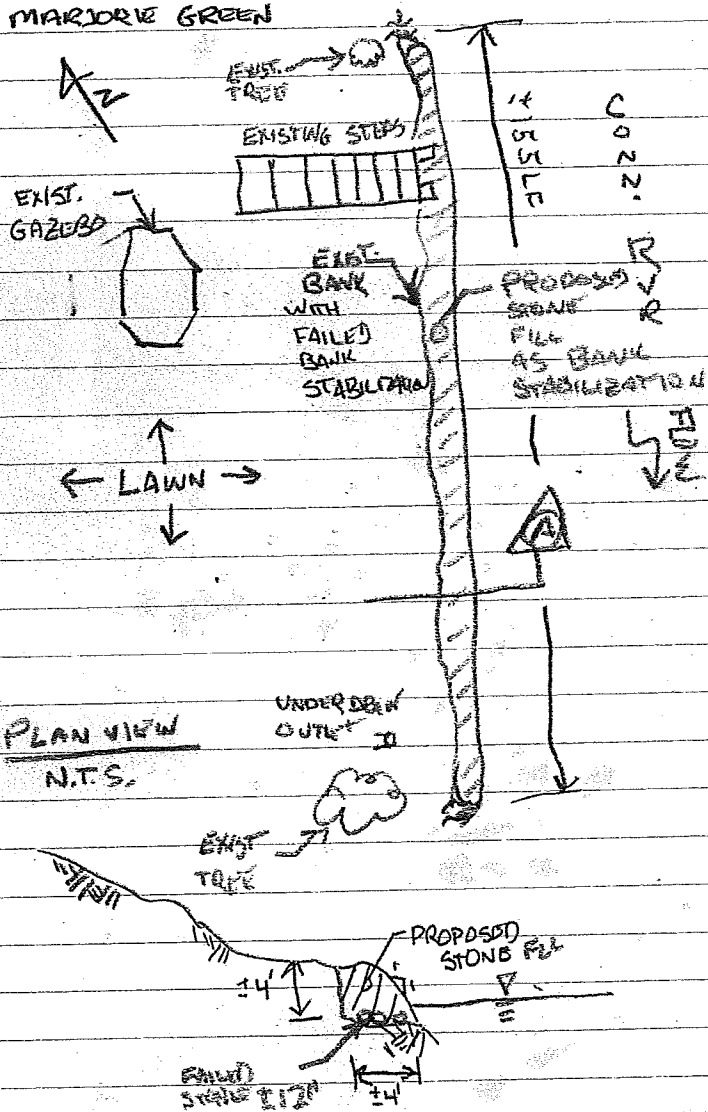 MARJORIE GREEN
EXIST.
TREE
N
EXISTING STEPS
EXIST.
GAZEBO
±155 LF
CONN.
RVR
FLOW
EXIST.
BANK
WITH
FAILED
BANK
STABILIZATION
PROPOSED
STONE
FILL
AS BANK
STABILIZATION
LAWN
A
UNDERDRAIN
OUTLET
PLAN VIEW
N.T.S.
EXIST
TREE
PROPOSED
STONE FILL
±4'
FAILED
STONE ±12"
±4'